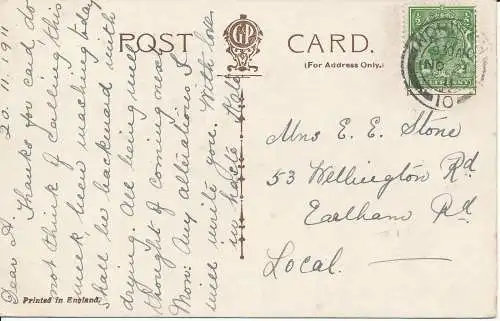 POST CARD.
(For Address Only.)
20.11.1911
Dear A. Thanks for card do
not think of calling this
week, been washing today
shall be backward with
drying. All being well
thought of coming next
Mon: Any alterations I
will write you. With love
in haste
Mrs E. E. Stone
53 Wellington Rd
Earlham Rd
Local.
Printed in England.